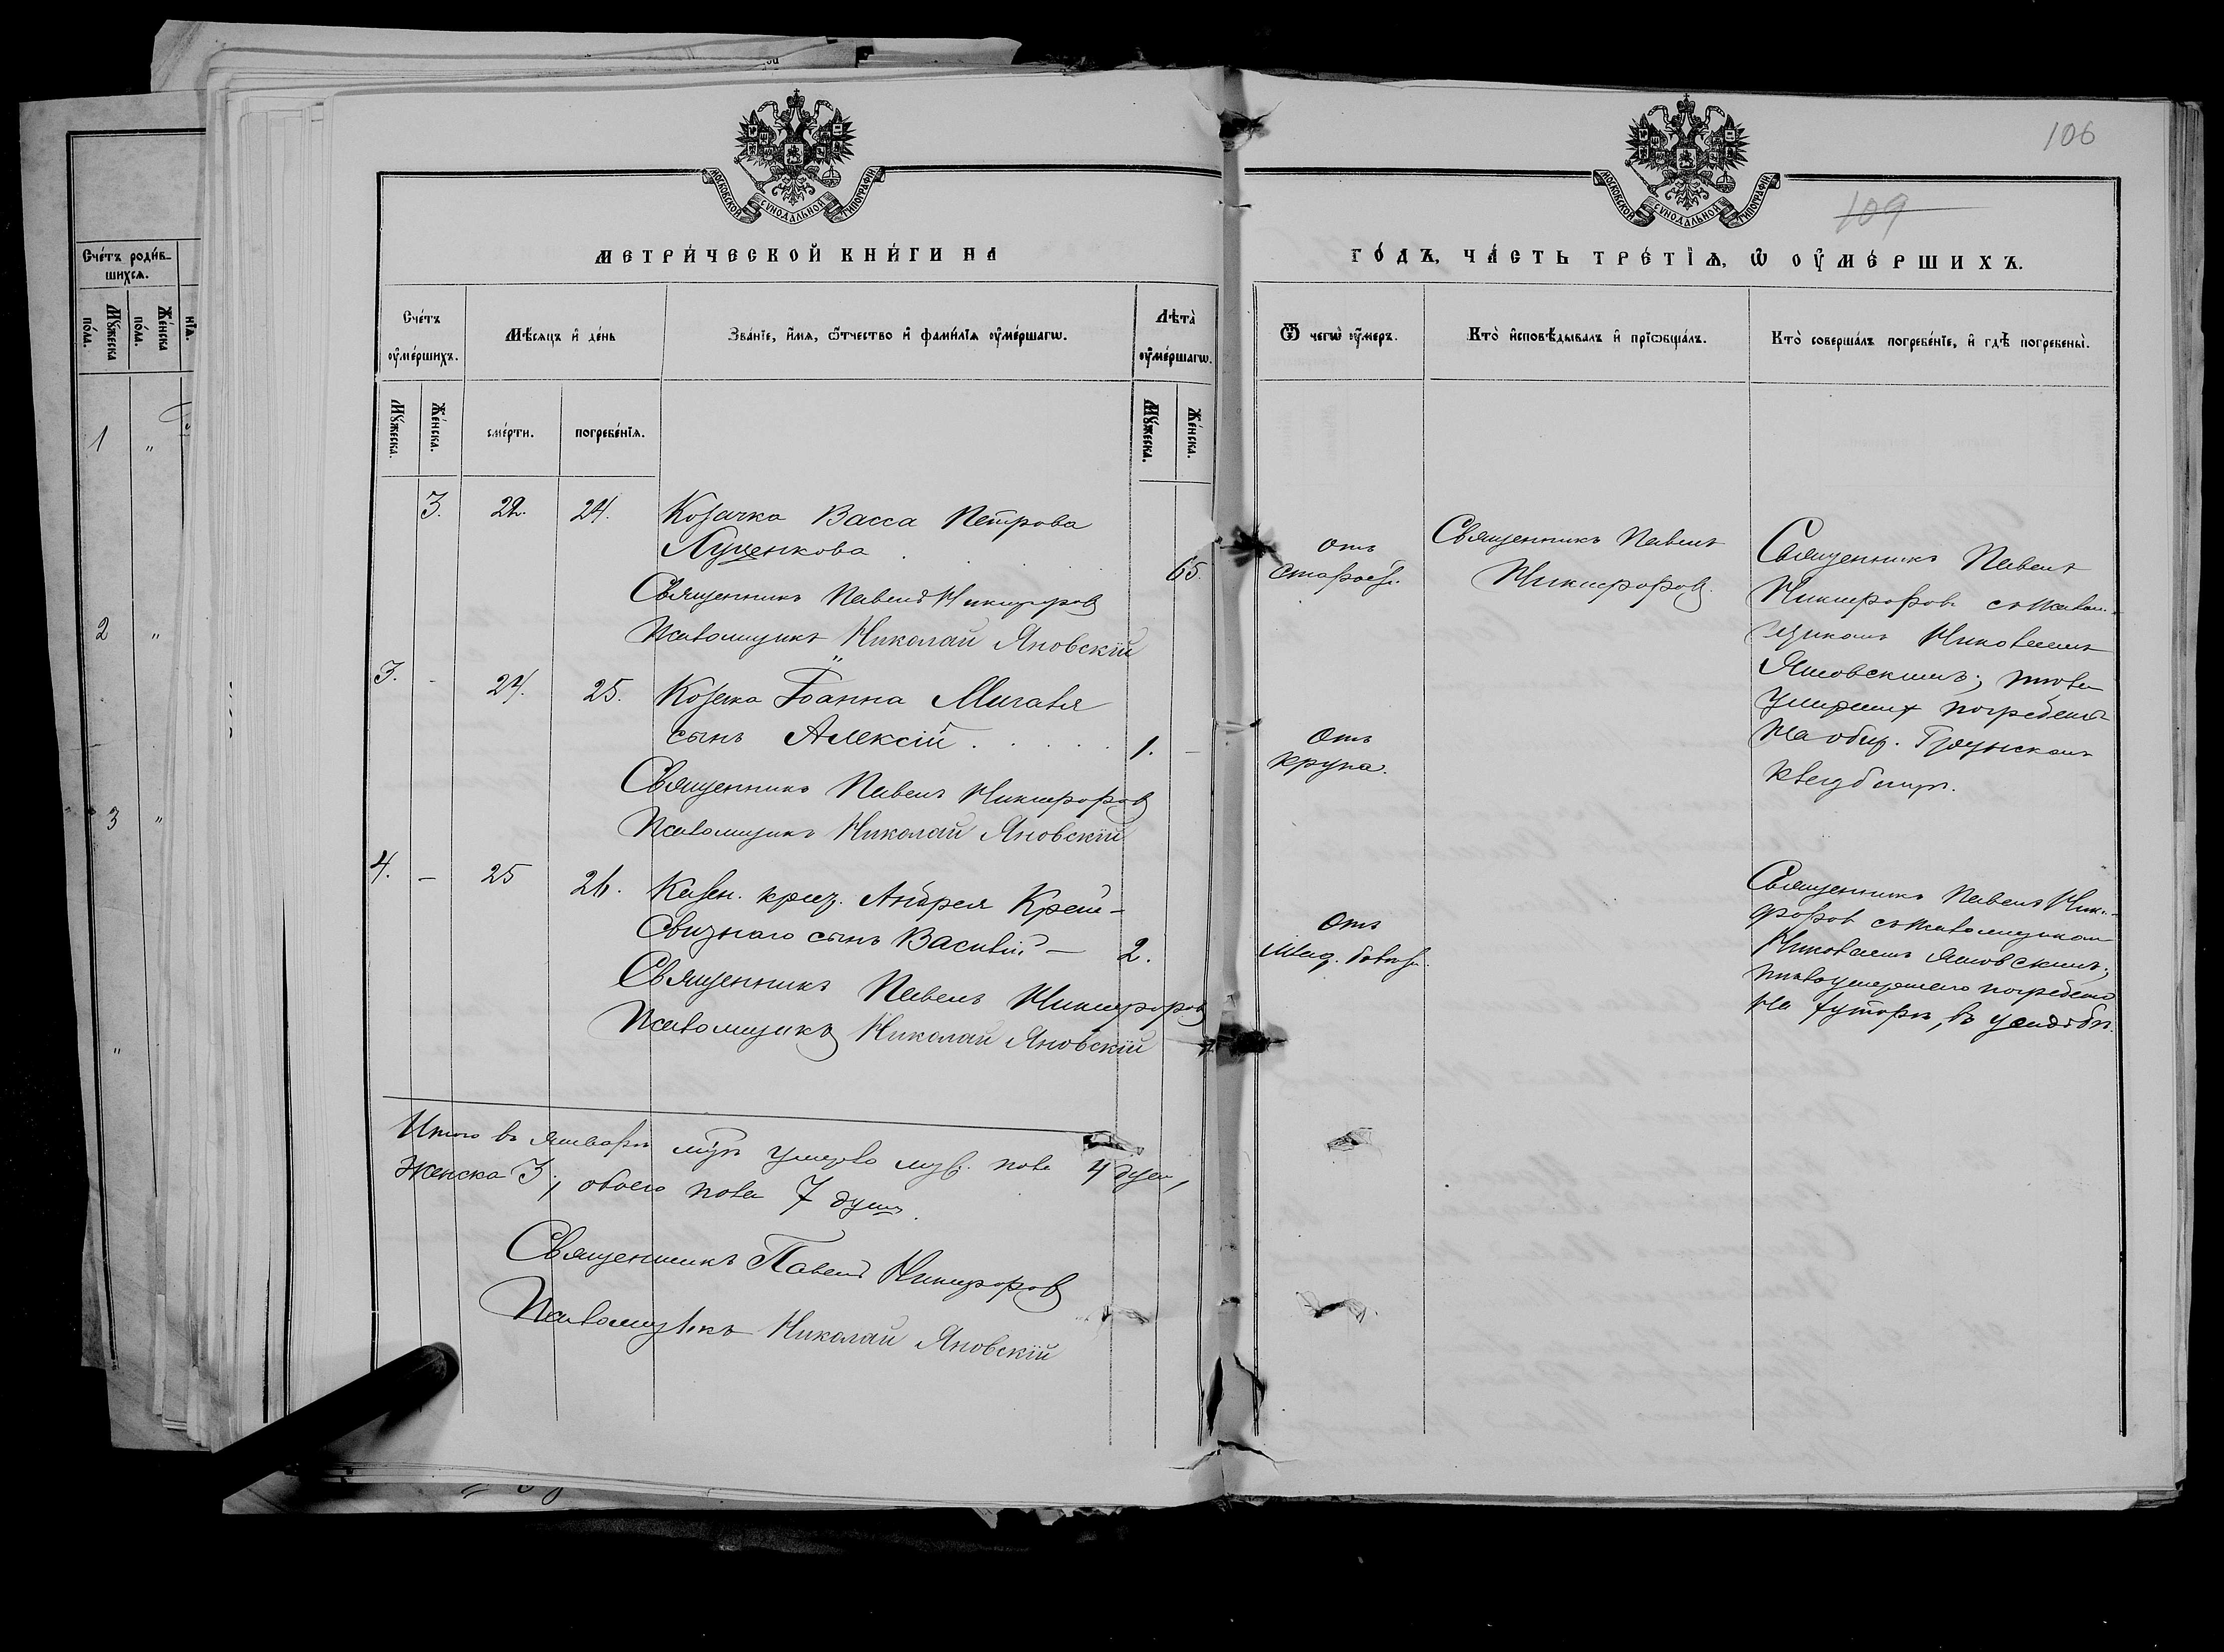 106
109
МОСКОВСКОЙ СѴНОДАЛЬНОЙ ТИПОГРАФІИ
МОСКОВСКОЙ СѴНОДАЛЬНОЙ ТИПОГРАФІИ
МЕТРИ́ЧЕСКОЙ КНИ́ГИ НА
ГО́ДЪ, ЧА́СТЬ ТРЕ́ТЇѦ, Ѡ ОУ҆МЕ́РШИХЪ.
Сче́тъ роди́в-
шихсѧ.
Мꙋ́жеска по́ла.
Же́нска по́ла.
нїѧ.
1 „
2 „
3 „
„
Сче́тъ
оу҆ме́ршихъ.
Мѣ́сѧцъ и҆ де́нь
Зва́нїе, и҆́мѧ, ѻ҆́тчество и҆ фами́лїѧ оу҆ме́ршагѡ.
Лѣ́та
оу҆ме́ршагѡ.
Ѿ чегѡ̀ оу҆́меръ.
Кто̀ и҆сповѣ́дывалъ и҆ прїѡбща́лъ.
Кто̀ соверша́лъ погребе́нїе, и҆ гдѣ̀ погребены̀.
Мꙋ́жеска.
Же́нска.
сме́рти.
погребе́нїѧ.
Мꙋ́жеска.
Же́нска.
3. 22. 24. Козачка Васса Петрова
Луценкова 65.
Священникъ Павелъ Никифоровъ
Псаломщикъ Николай Яновскій
Отъ
старос.
Священникъ Павелъ
Никифоровъ.
Священникъ Павелъ
Никифоровъ съ псалом-
щикомъ Николаемъ
Яновскимъ; тѣла
умершихъ погребены
на общ.
кладбищѣ.
3. - 24. 25. Козака Іоанна Мигаля
сынъ Алексій 1. -
Священникъ Павелъ Никифоровъ
Псаломщикъ Николай Яновскій
Отъ
крупа.
4. - 25 26. Казен. крест. Андрея
сынъ Василій - 2.
Священникъ Павелъ Никифоровъ
Псаломщикъ Николай Яновскій
Отъ
млад.
Священникъ Павелъ Ники-
форовъ съ псаломщикомъ
Николаемъ Яновскимъ;
тѣло умершаго погребено
на хуторѣ, въ усадьбѣ.
Итого въ Январѣ м-цѣ умерло муж. пола 4 душ,
женска 3, обоего пола 7 душъ.
Священникъ Павелъ Никифоровъ
Псаломщикъ Николай Яновскій